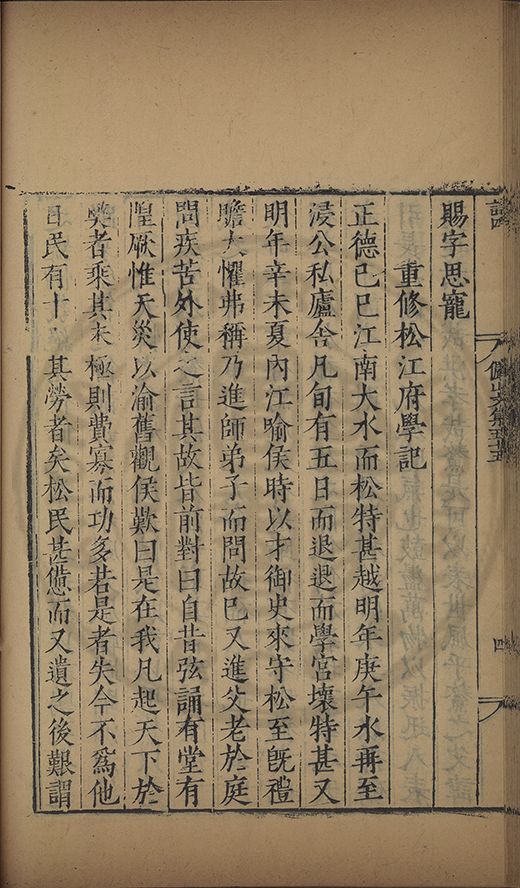 賜字思寵
重修松江府學記
正德己巳江南大水而松特甚越明年庚午水再至
浸公私廬舍凡旬有五日而退退而學宮壞特甚又
明年辛未夏內江喻侯時以才御史來守松至旣禮
瞻大懼弗稱乃進師弟子而問故已又進父老於庭
問疾苦外使之言其故皆前對曰自昔弦誦有堂有
惶厥惟天災以渝舊觀侯歎曰是在我凡起天下於
獘者乘其未極則費寡而功多若是者失今不爲他
日民有十其勞者矣松民甚憊而又遺之後艱謂